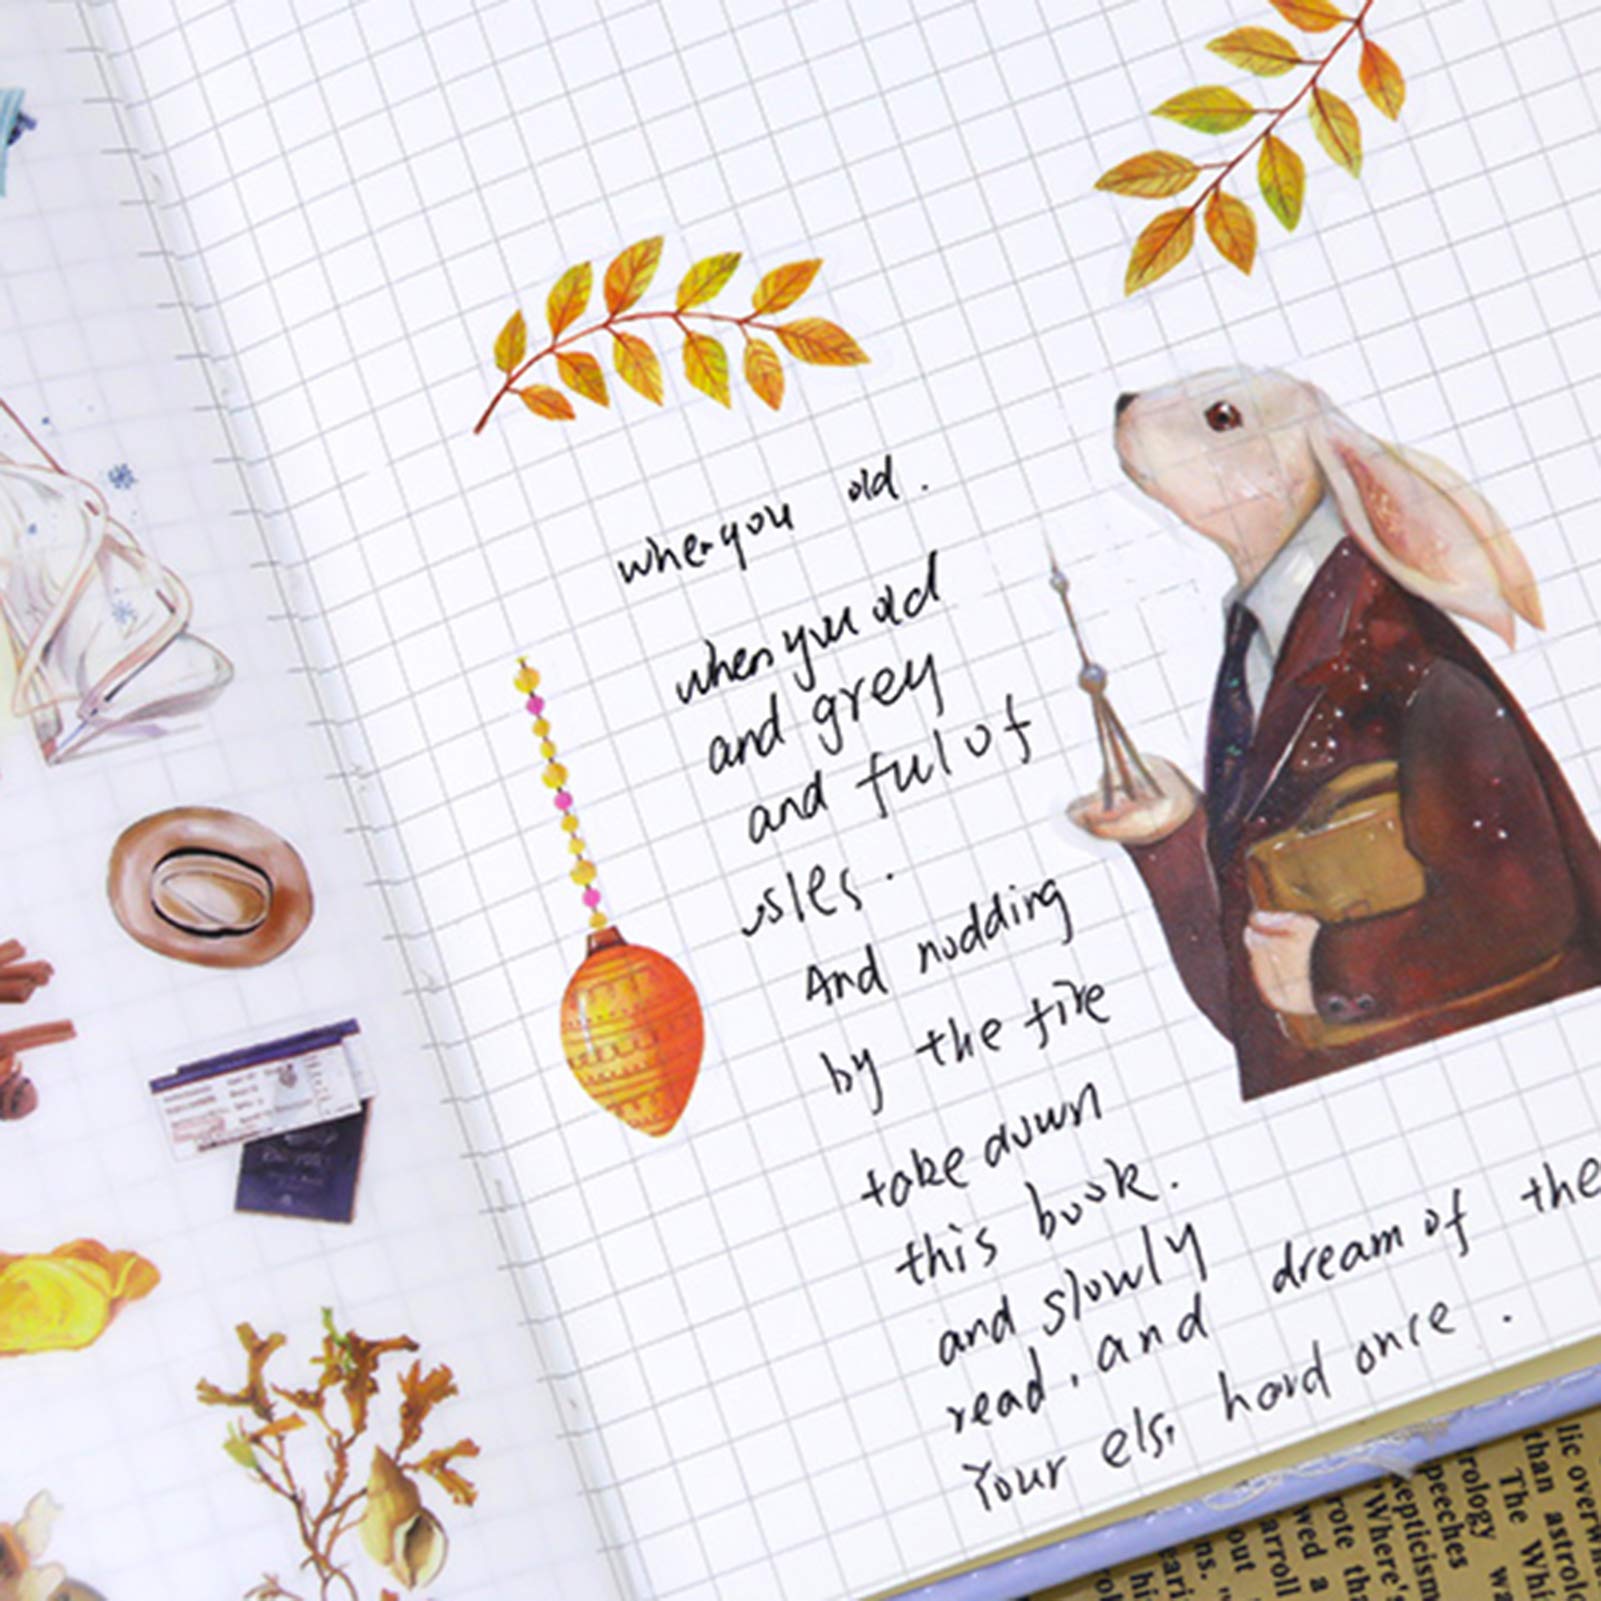 when you old.
when you old
and grey
and ful of
sles.
And nodding
by the fire
take down
this book.
and slowly
read. and dream of the
Your els, hord once.
lic overw
than astrolo
rology
The Whi
peeches
wa
kepticism
"Where's
rote tha
wed a
arroll
out
ns.